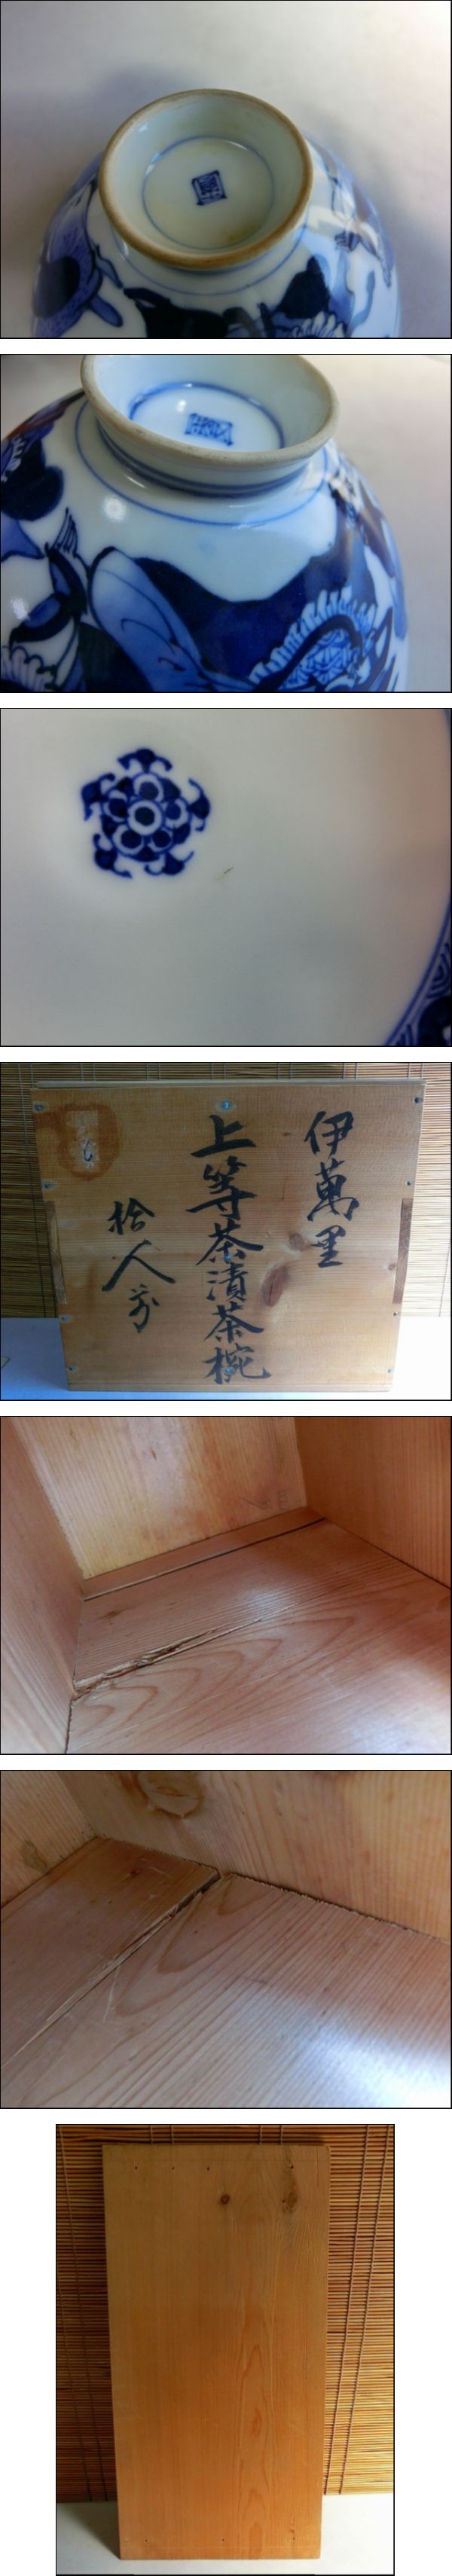 伊萬里
上等茶漬茶椀
拾人前